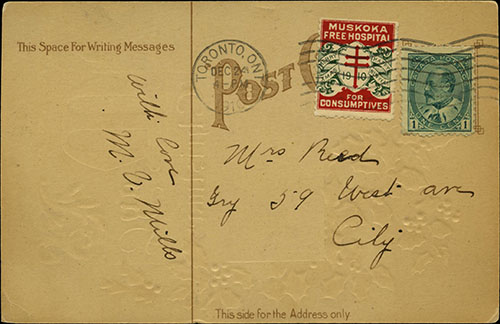 This Space For Writing Messages
with love
M. V. Mills
TORONTO, ONT
DEC 24
POST
MUSKOKA
FREE HOSPITAL
19 10
FOR
CONSUMPTIVES
1 1
Mrs Reed
59 West ave
City
This side for the Address only